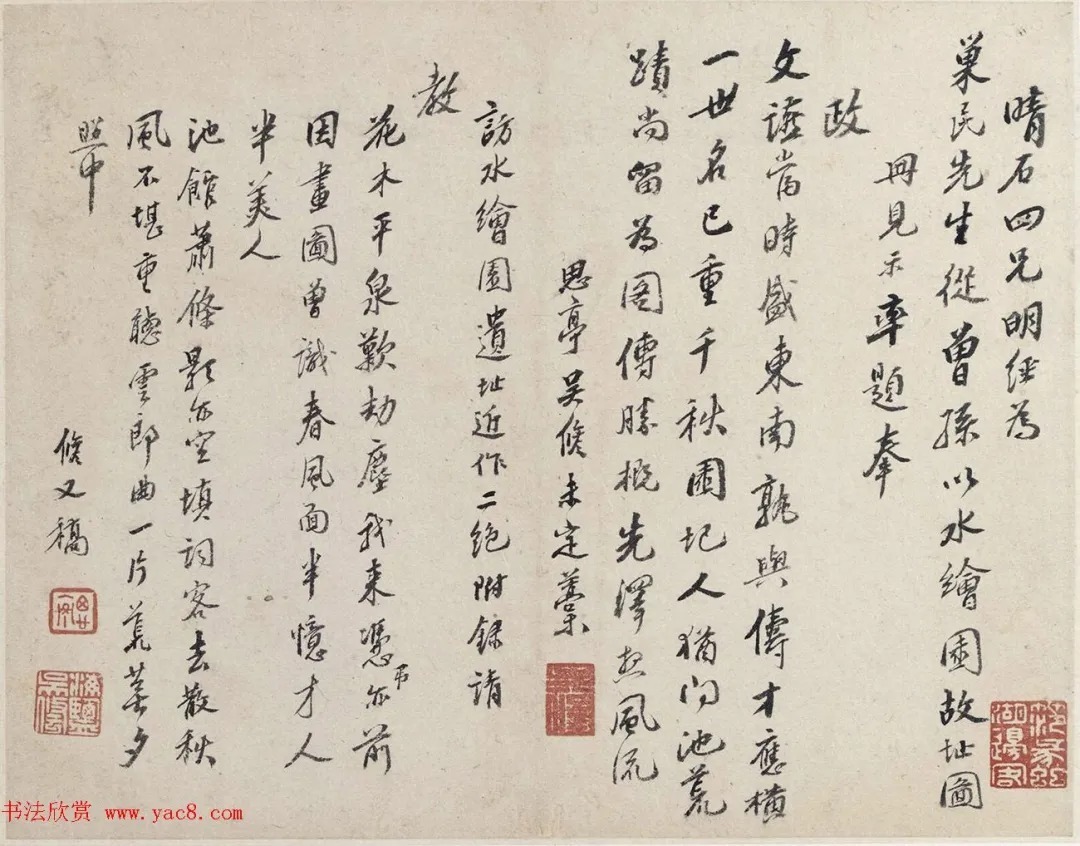 晴石四兄明經為
巢民先生從曾孫以水繪園故址圖
冊見示率題奉
政
文讌當時盛東南孰與儔才應橫
一世名已重千秋園圮人猶問池荒
蹟尚留為圖傳勝概先澤想風流
思亭吳脩未定藁
訪水繪園遺址近作二絕附錄請
教
花木平泉歎劫塵我來憑弔亦前
因畫圖曾識春風面半憶才人
半美人
池館蕭條影亦空填詞客去散秋
風不堪重聽雲郎曲一片荒蕪夕
照中
脩又稿
书法欣赏 www.yac8.com